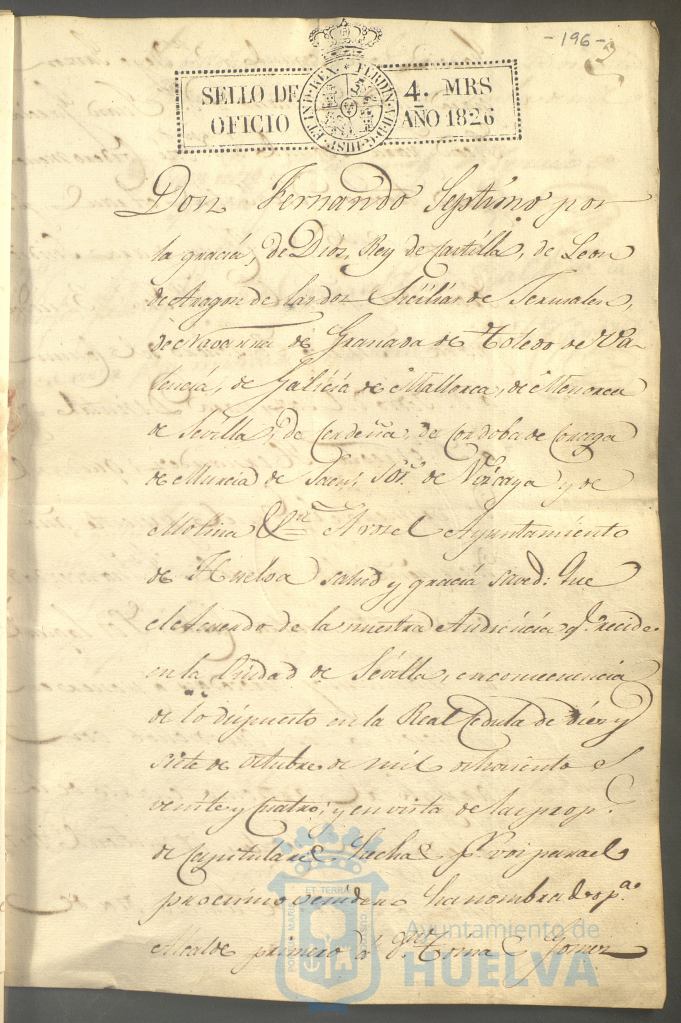 - 196 -
SELLO DE 4. MRS
OFICIO AÑO 1826
FERDIN. VII. D. G. HISP. ET IND. REX.
Don Fernando Septimo por
la gracia, de Dios, Rey de Castilla, de Leon
de Aragon de las dos Sicilias de Jerusalen,
de Navarra de Granada de Toledo de Va-
lencia, de Galicia de Mallorca, de Menorca
de Sevilla, de Cerdeña, de Cordoba de Corcega
de Murcia de Jaen, Sor. de Vizcaya y de
Molina &. A vos el Ayuntamiento
de Huelva salud y gracia saved: Que
el Acuerdo de la nuestra Audiencia q.e recide
en la Ciudad de Sevilla, en consecuencia
de lo dispuesto en la Real Cedula de diez y
siete de octubre de mil ochociento s
veinte y cuatro; y en vista de las prop.s
de Capitulares hechas p.r vos para el
procsimo venidero ha nombrado p.a
Alcalde primero á Gomez
Ayuntamiento de
HUELVA